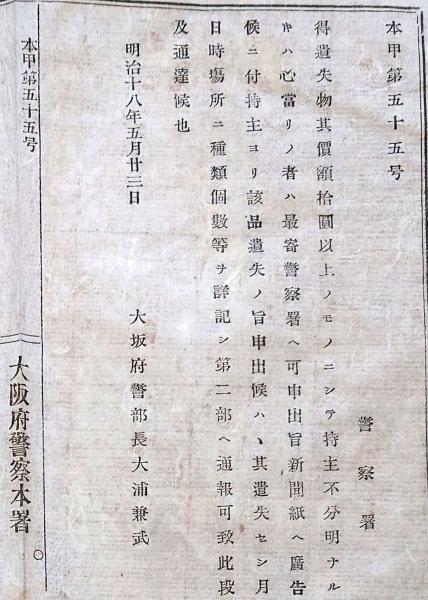 本甲第五十五号
警察署
得遺失物其價額拾圓以上ノモノニシテ持主不分明ナル
キハ心當リノ者ハ最寄警察署ヘ可申出旨新聞紙ヘ廣告
候ニ付持主ヨリ該品遺失ノ旨申出候ハヽ其遺失セシ月
日時場所ニ種類個數等ヲ詳記シ第二部ヘ通報可致此段
及通達候也
明治十八年五月廿三日
大坂府警部長大浦兼武
本甲第五十五号
大阪府警察本署